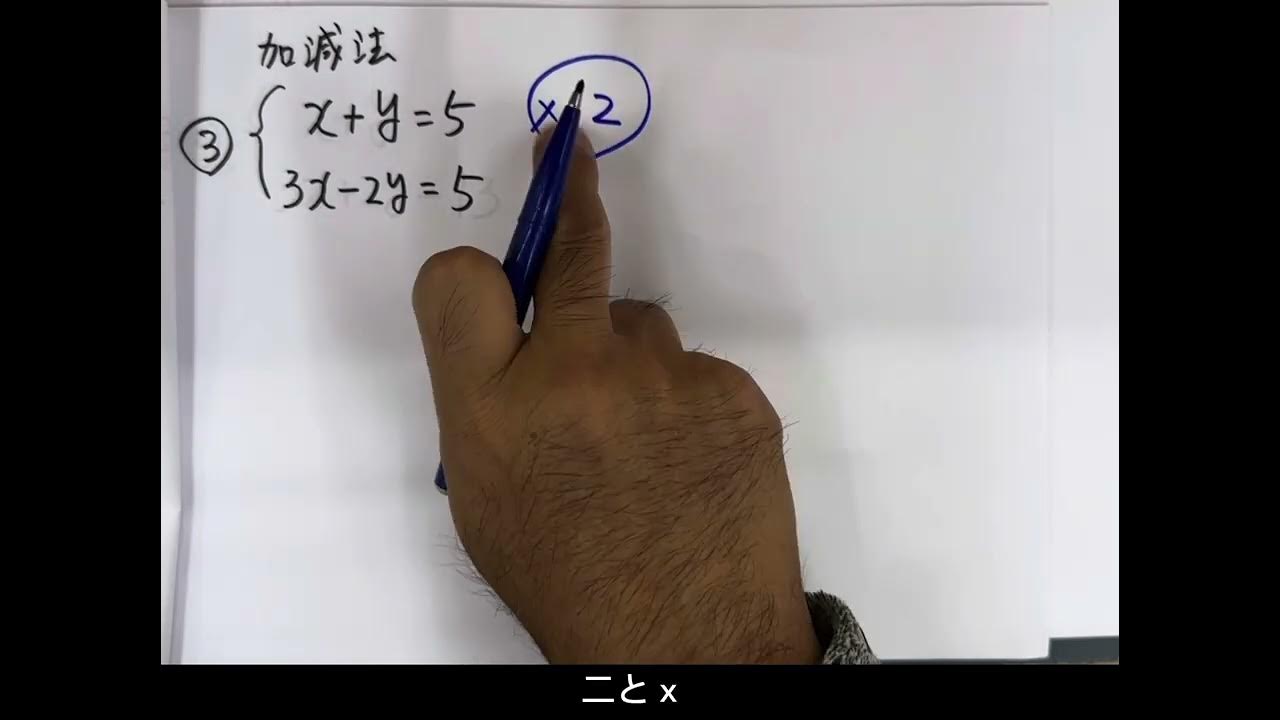 加減法
③ x+y=5 ×2
3x-2y=5
二とx